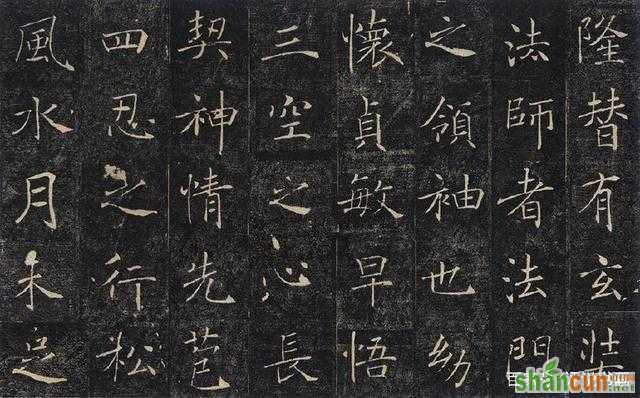 隆替有玄奘
法師者法門
之領袖也幼
懷貞敏早悟
三空之心長
契神情先苞
四忍之行松
風水月未足
shancun
.net